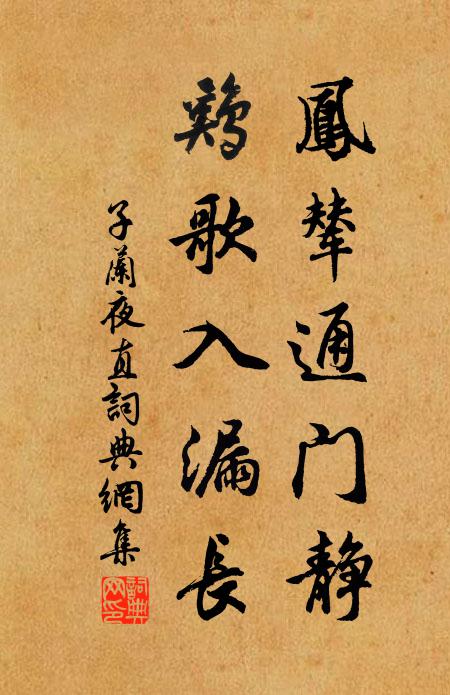 鳳輦通門静
鷄歌入漏長
子蘭夜直詞典網集
詞典網印